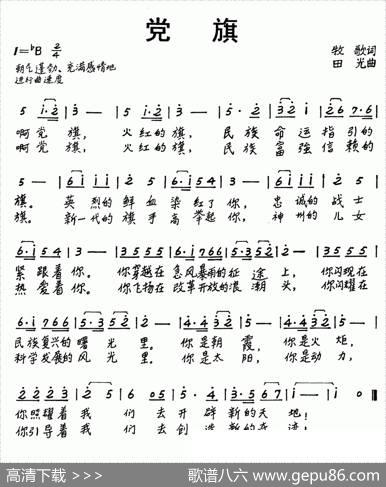 党 旗
1=♭B 2/4
朝气蓬勃、充满感情地
进行曲速度
牧 歌词
田 光曲
啊党 旗， 火红的 旗， 民族 命运指引的
啊党 旗， 火红的 旗， 民族 富强信赖的
旗。 英烈的 鲜血染红了你， 忠诚的战士
旗。 新一代的旗手高举起你， 神州的儿女
紧跟着你。 你穿越在急风暴雨的征途上， 你闪现在
热爱着你。 你飞扬在改革开放的浪潮头， 你闪耀在
民族复兴的曙光里。 你是朝霞， 你是火炬，
科学发展的风光里。 你是太阳， 你是动力，
你照耀着我们去开辟新的天地！
你引导着我们去创造新的奇迹！
高清下载 >>>
歌谱八六 www.gepu86.com